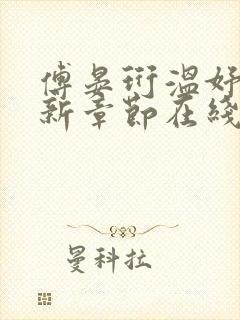 傅晏珩温好
新章節在綫
曼科拉